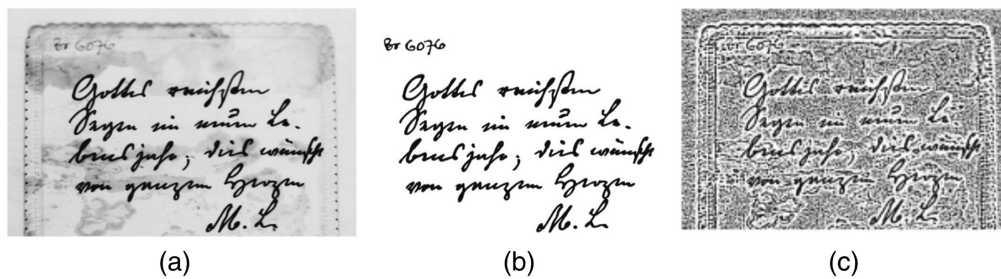 Br 6076
Gottes reichsten
Segen im neuen Le-
bensjahr, dies wünscht
von ganzem Herzen
M. L.
(a)
Br 6076
Gottes reichsten
Segen im neuen Le-
bensjahr, dies wünscht
von ganzem Herzen
M. L.
(b)
Br 6076
Gottes reichsten
Segen im neuen Le-
bensjahr, dies wünscht
von ganzem Herzen
M. L.
(c)